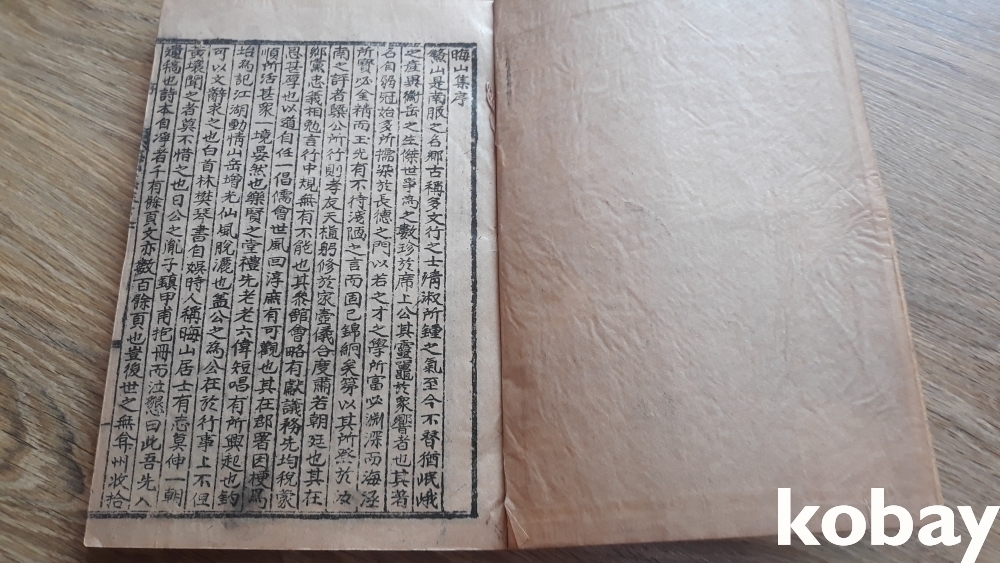 晦山集序
鰲山是南服之名鄕古稱多文行之士淸淑所鍾之氣至今不替猶岷峨
之產與衡岳之生傑世爭高之數珍於席上公其靈鼉於衆響者也其若
名自弱冠始多所擩染於長德之門以若之才之學所富必淵深而海涵
所寶必金精而玉光有不待淺陋之言而固已錦絅矣第以其所熟於汝
南之評者槩公所行則孝友天植躬修於家壼儀合度肅若朝廷也其在
鄕黨忠義相勉言行中規無有不能也其參館會略有獻議務先均稅蒙
恩甚厚也以道自任一倡儒會世風回淳庶有可觀也其在郡署因梗爲
順所活甚衆一境晏然也樂賢之堂禮先老老六偉短唱有所興起也釣
坮爲記江湖動情山岳增光仙風脫灑也蓋公之爲公在於行事上不但
可以文辭求之也白首林樊琴書自娛時人稱晦山居士有志莫伸一朝
黃壤聞之者莫不惜之也日公之胤子鎭甲甫抱冊而泣懇曰此吾先人
遺稿也詩本自淨者千有餘頁文亦數百餘頁也豈復世之無弇州收拾
kobay